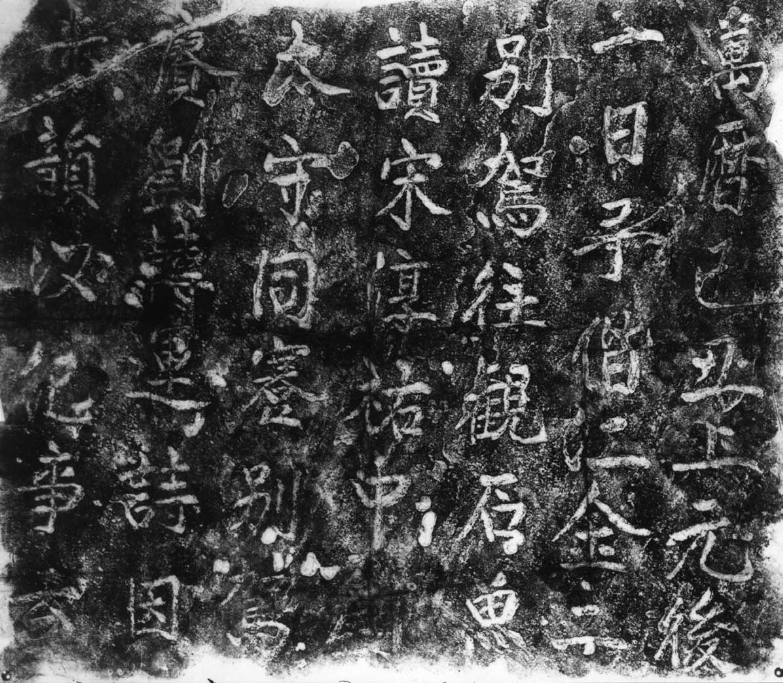 萬曆己丑上元後
一日予偕江金二
别駕往觀石魚
讀宋淳祐中劉
太守同蹇别駕
賡劉轉運詩因
韻以紀事云